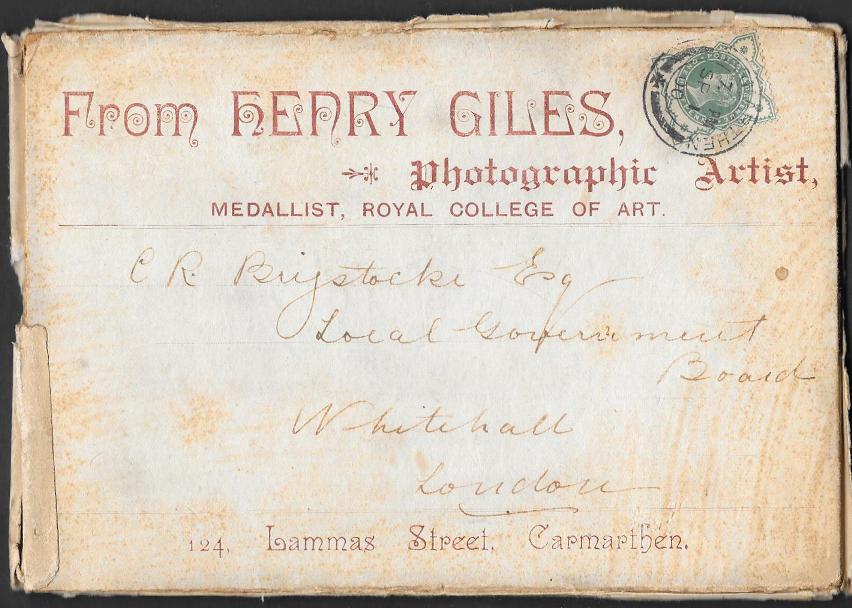 From HENRY GILES,
Photographic Artist,
MEDALLIST, ROYAL COLLEGE OF ART.
C R Brigstocke Esq
Local Government
Board
Whitehall
London
124, Lammas Street, Carmarthen.